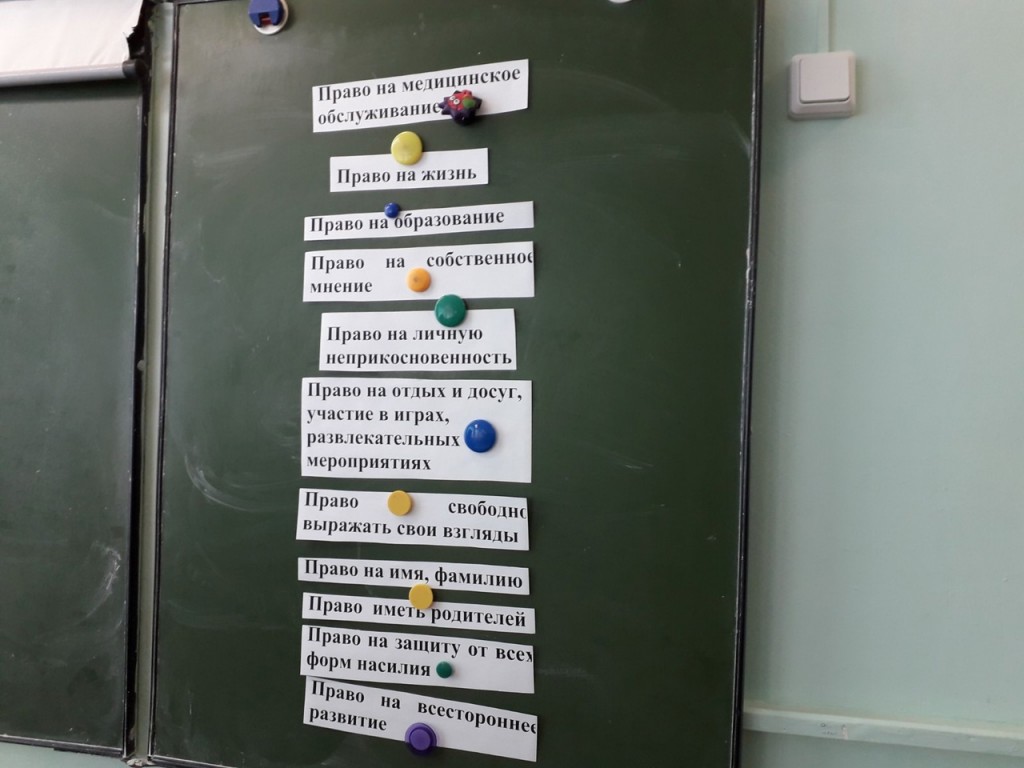 Право на медицинское
обслуживание
Право на жизнь
Право на образование
Право на собственное
мнение
Право на личную
неприкосновенность
Право на отдых и досуг,
участие в играх,
развлекательных
мероприятиях
Право свободно
выражать свои взгляды
Право на имя, фамилию
Право иметь родителей
Право на защиту от всех
форм насилия
Право на всестороннее
развитие